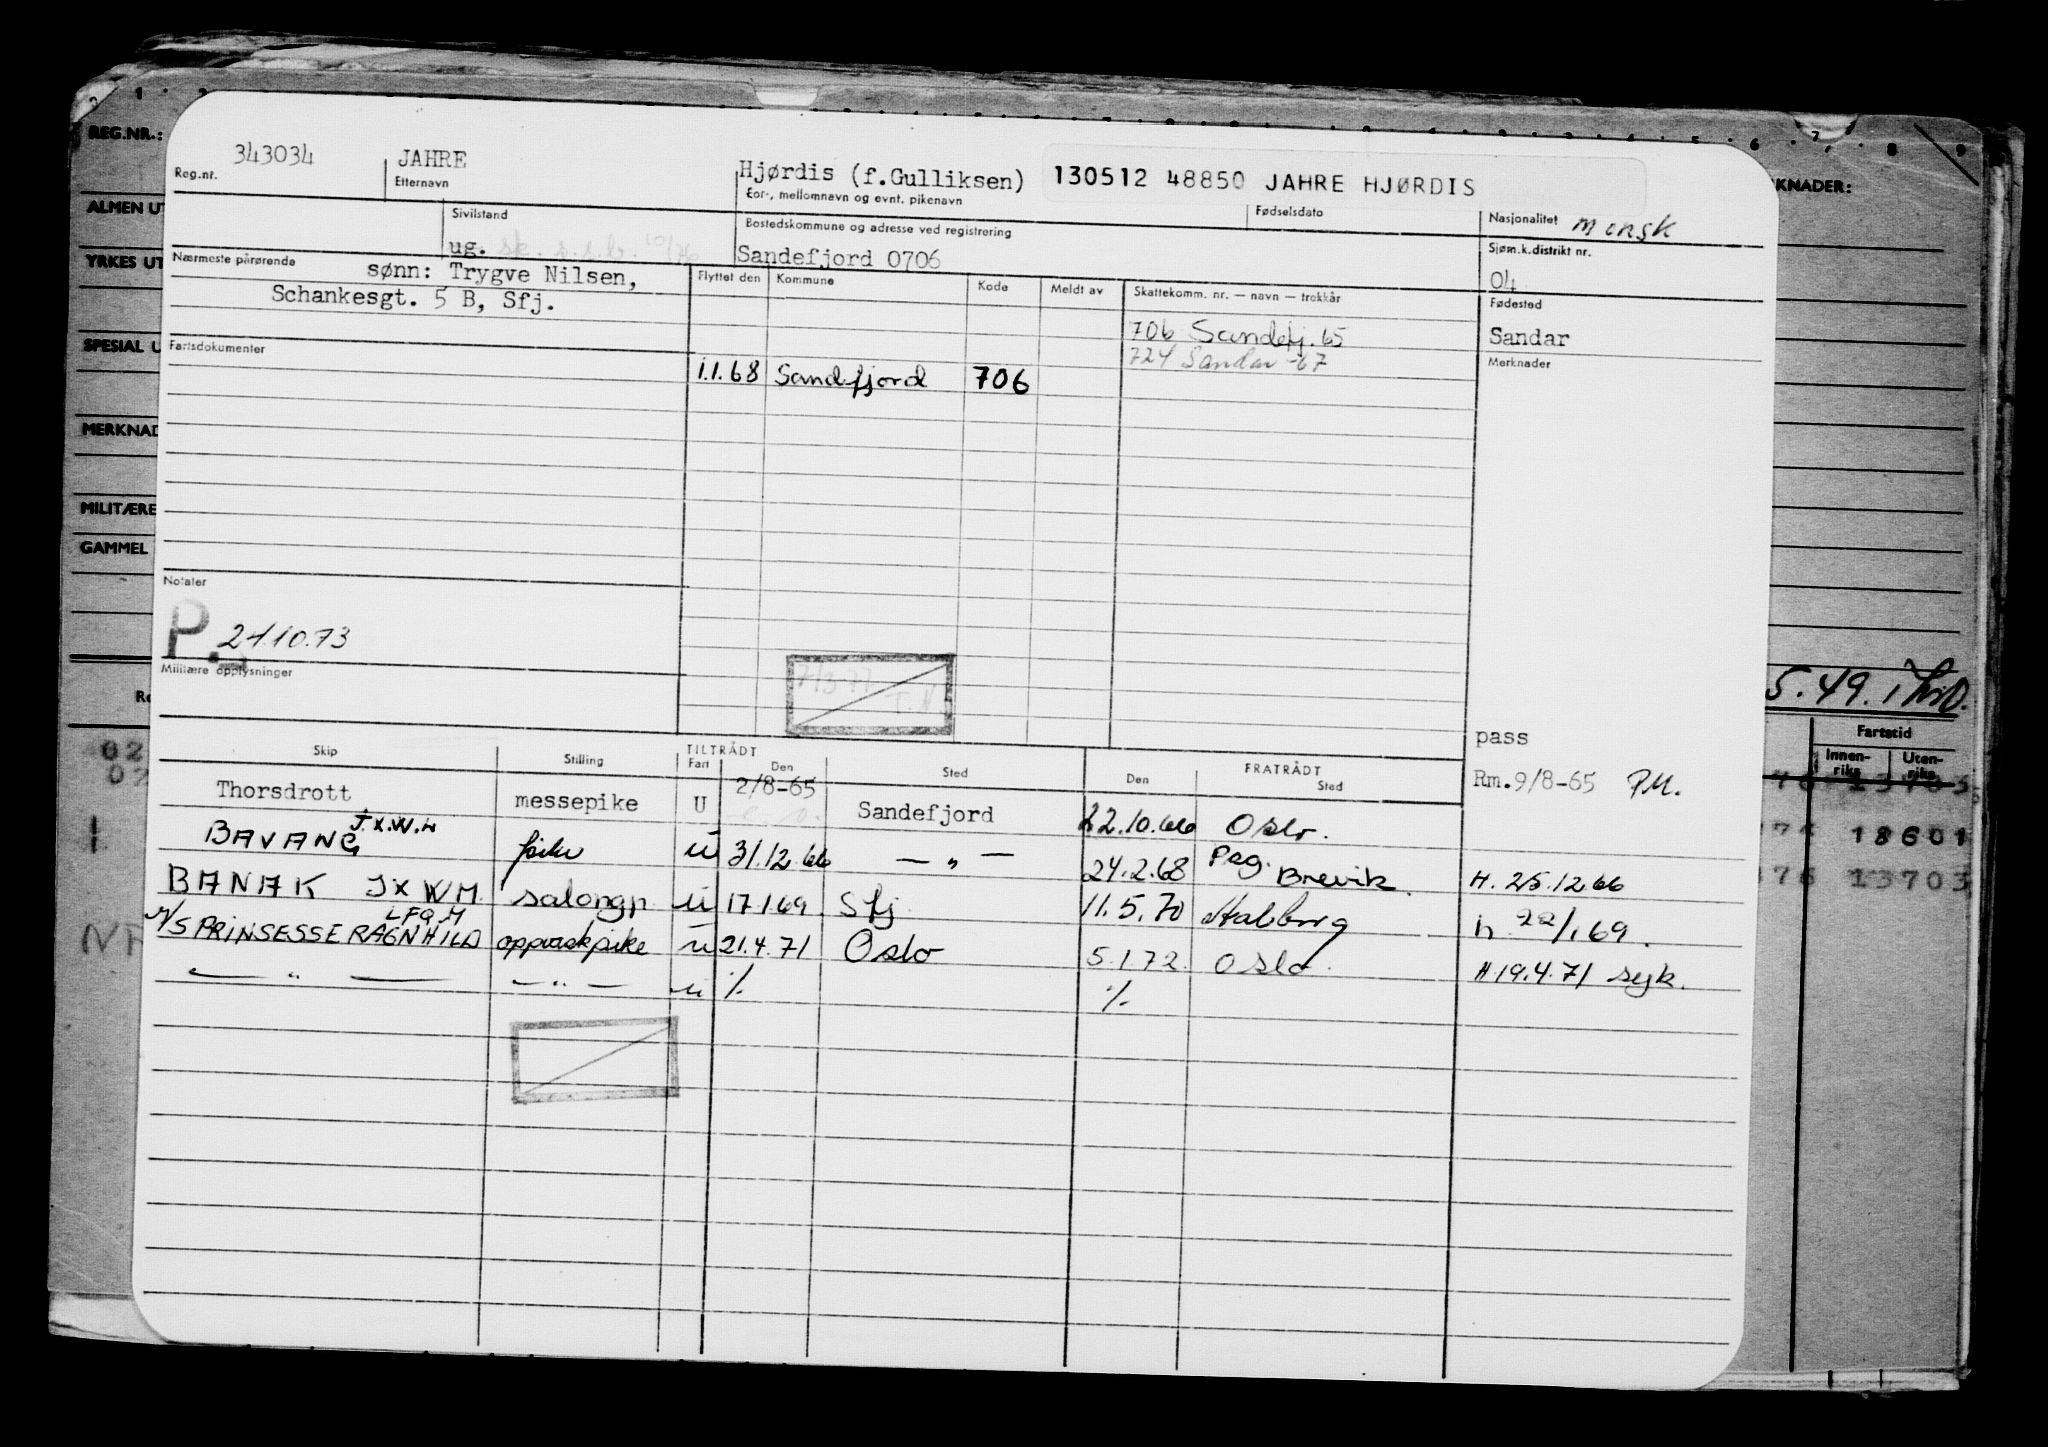 REG.NR.:
ALMEN UT
YRKES UT
SPESIAL U
MERKNAD
MILITÆRE
GAMMEL
KNADER:
343034 JAHRE Hjørdis (f.Gulliksen) 130512 48850 JAHRE HJØRDIS
Reg.nr. Etternavn For-, mellomnavn og evnt. pikenavn Fødselsdato Nasjonalitet norsk
Sivilstand Bostedskommune og adresse ved registrering Sjøm.k.distrikt nr.
ug. Sandefjord 0706 04
Nærmeste pårørende sønn: Trygve Nilsen,
Schankesgt. 5 B, Sfj.
Flyttet den Kommune Kode Meldt av Skattekomm. nr. — navn — trekkår Fødested
706 Sandefj. 65 Sandar
724 Sandar -67 Merknader
Fartsdokumenter
1.1.68 Sandefjord 706
Notater
P. 24.10.73
Militære opplysninger
7/3-77 T.N
5.49.
pass
TILTRÅDT FRATRÅDT
Skip Stilling Fart Den Sted Den Sted
Thorsdrott messepike U 2/8-65 Sandefjord 22.10.66 Oslo. Rm.9/8-65 P.M.
BAVANG J.X.W.W pike u 31.12.66 — " — 24.2.68 Psg. Brevik. H. 25.12.66
BANAK JXWM salongp. u 17.1.69 Sfj 11.5.70 h. 22/1.69.
M/S PRINSESSE RAGNHILD LFQM oppvaskpike u 21.4.71 Oslo 5.1.72. Oslo. H 19.4.71 sejk.
— " — — " — u % %
Fartstid
Innen-
riks Uten-
riks
13703
18601
13703